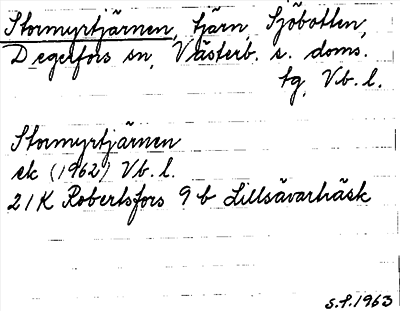 Stormyrtjärnen, tjärn, Sjöbotten,
Degerfors sn, Västerb. s. doms.
tg, Vb. l.
Stormyrtjärnen
ek (1962) Vb. l.
21K Robertsfors 9 b Lillsävarträsk
S.F. 1963